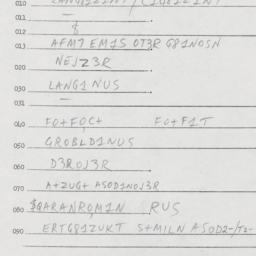 010
011
012 $
013 AFM7 EM1S OT3R G81NOSN
020 NEJZ3R
030 LANG1NUS
031 —
040 FO+FOC+ FO+F1T
050 GROBLD1NUS
060 D3ROJ3R
070 A+ZUG+ ASOD1NOJ3R
080 $QARANROM1N RUS
090 ERTG81ZUKT S+MILN ASOD2-/T2-